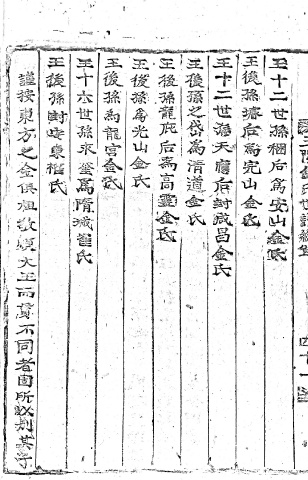 王十二世孫桐后爲安山金氏
王後孫璿后爲完山金氏
王十二世孫天膺后封咸昌金氏
王後孫之岱爲清道金氏
王後孫龍庇后爲高靈金氏
王後孫爲光山金氏
王後孫爲龍宮金氏
王十六世孫永奎爲隋城崔氏
王後孫封安東權氏
謹按東方之金俱祖敬順大王而貫不同者固所以判其字